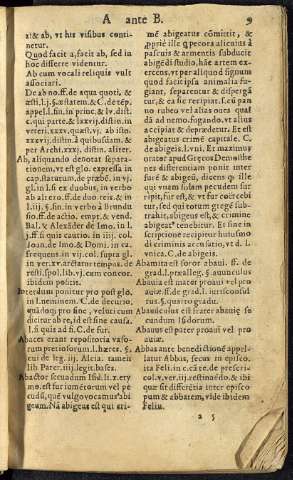 A ante B. 9
a: & ab, vt his visibus conti
netur.
Quod facit a, facit ab, sed in
hoc differre videntur.
Ab cum vocali reliquis vult
associari.
De ab no. ff. de aqua quoti, &
C. de
l. fin. in princ. & lv. dist.
c. qui parte, & lxxvij. distin. in
veteri. xxxv. quæsti. vj. ab isto.
xxxvij. distin. à quibusdam, &
per Archi. xxxj. distin. aliter.
Ab, aliquando denotat separa-
tionem, vt est glo. expressa in
de præbe. in vj.
gl. in l. si ex duobus, in verbo
ab altero. ff. de duo reis, & in
l. iij. §. fin. in verbo à Brundu
sio. ff. de actio. empt. & vend.
Bal. & Alexāder de Imo. in l.
j. ff. si quis cautio. in iij. col.
Joan. de Imo. & Domi. in ca.
frequens in vij. col. supra gl.
in ver.
resti. spol. lib. vj. cum concor.
ibidem positis.
Interdum ponitur pro post glo.
in l. neminem. C. de decurio.
quādoq; pro sine, veluti cum
dicitur ab re, id est sine causa.
l. si quis ad fi. C. de fur.
Abaces erant repositoria vaso-
rum preciosorum. l. hæres. §.
cui de leg. iij. Alcia. rameis
lib. Parer. iiij. legit. bases.
Abactor secundum Isid. li. x. ety
mo. est fur iumetorum vel pe
cudū, quē vulgo vocamus abi
geum. Nā abigeus est qui cri-
mē abigeatus cōmittit, &
propriè ille q pecora aliena à
pascuis & armentis subducit
abigēdi studio, hāc artem ex
ercens, vt per aliquod signum
quod facit ipsa animalia fu
giant, separentur & dispergā
tur, & ea sic reripiat. s. cū pan
no rubeo vel alias nota qua
dā ad nemo. fogando, vt alius
accipiat & deprædetur. Et est
abigeatus crimē capitale. C.
de abigeis. l. vni. Et maximus
orator apud Gręcos Demosthe
nes differentiam ponit inter
fuē & abigeū, dicens q ille
qui vnum suem pecudem sur
ripit, fur est, & vt fur coërcebi
tur, sed qui totum gregē sub-
trahit, abigeus est, & crimine
abigeatꝰ tenebitur. Et sunc in
scriptione recipitur huiusmo
di criminis accusatio, vt d. l.
vnica. C. de abigeis.
Abamita est soror abaui. ff. de
grad. l. præalleg. §. auunculus
Abauia est mater proaui vel pro
auiæ. ff. de grad. l. iurisconsul
tus. §. quarto gradu.
Abauūculus est frater abauię so
cundum l. §. modum.
Abauus est pater proaui vel pro
auiæ.
Abba ante benedictionē appel-
latur Abbas, secus in episco.
ita Feli. in c. cūt ē. de præscri-
col. v. ver. iij. restitu ēdo. & ibi
quæ sit differētia inter episco
pum & abbatem, vide ibidem
Felin.
a 5